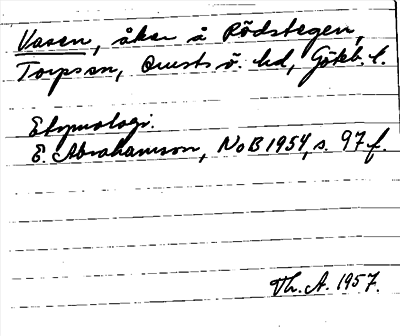 Vasen, åker å Rödstegen,
Torpson, Qvists ö. hd, Göteb. l.
Etymologi.
E. Abrahamson, NoB 1954, s. 97 f.
Th. A. 1957.